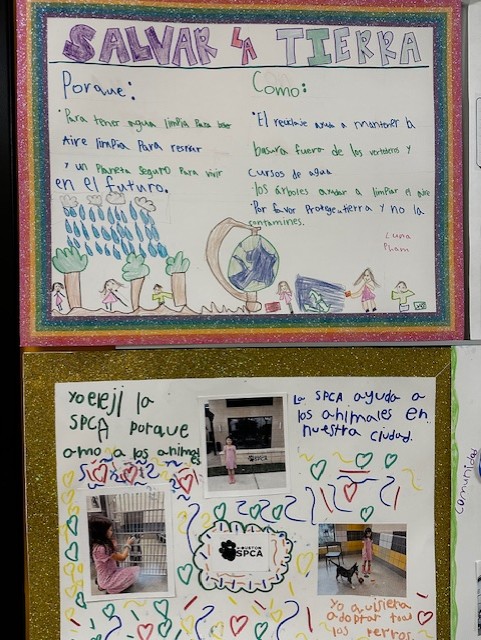 SALVAR LA TIERRA
Porque:
Para tener agua limpia para beber
Aire limpia Para respirar
y un Planeta seguro Para vivir
en el futuro.
Como:
El reciclaje ayuda a mantener la
basura fuera de los vertederos y
Cursos de agua
los árboles ayudar a limpiar el aire
Por favor Protege tierra y no la
contamines.
Luna
Pham
Yo elejí la
SPCA Porque
amo a los animales
La SPCA ayuda a
los animales en
nuestra ciudad.
HOUSTON
SPCA
Yo quisiera
adoptar todos
los perros.
Comunidad